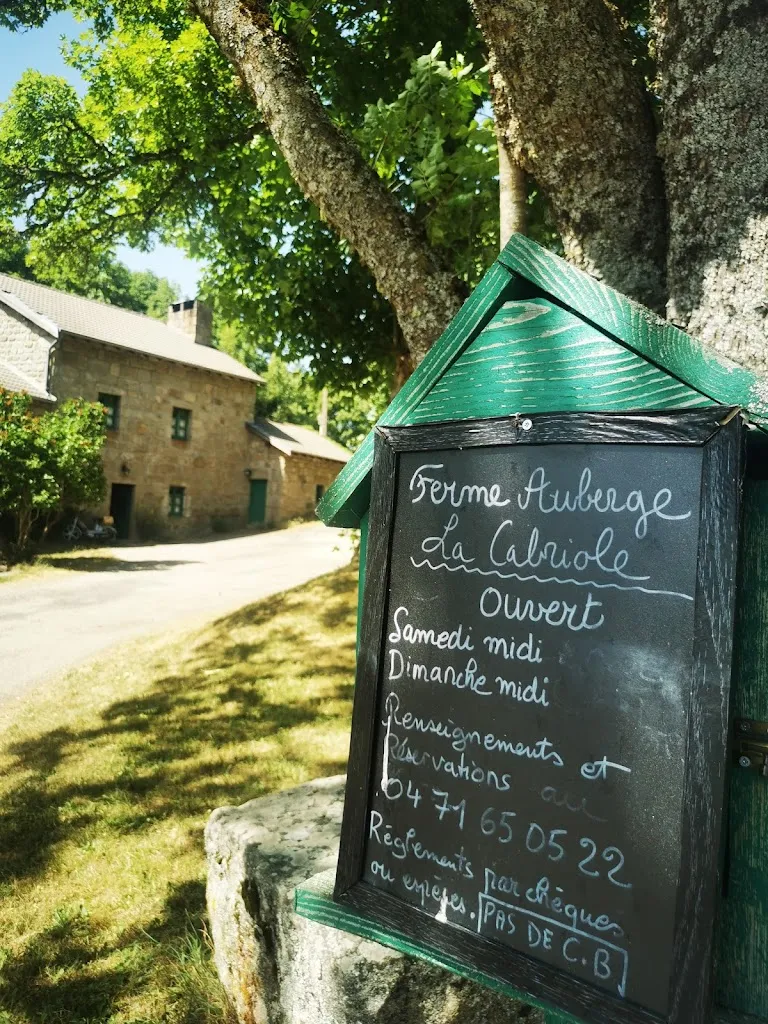 Ferme Auberge
La Cabriole
Ouvert
Samedi midi
Dimanche midi
Renseignements et
Réservations au
04 71 65 05 22
Règlements par chèques
ou espèces. PAS DE C.B